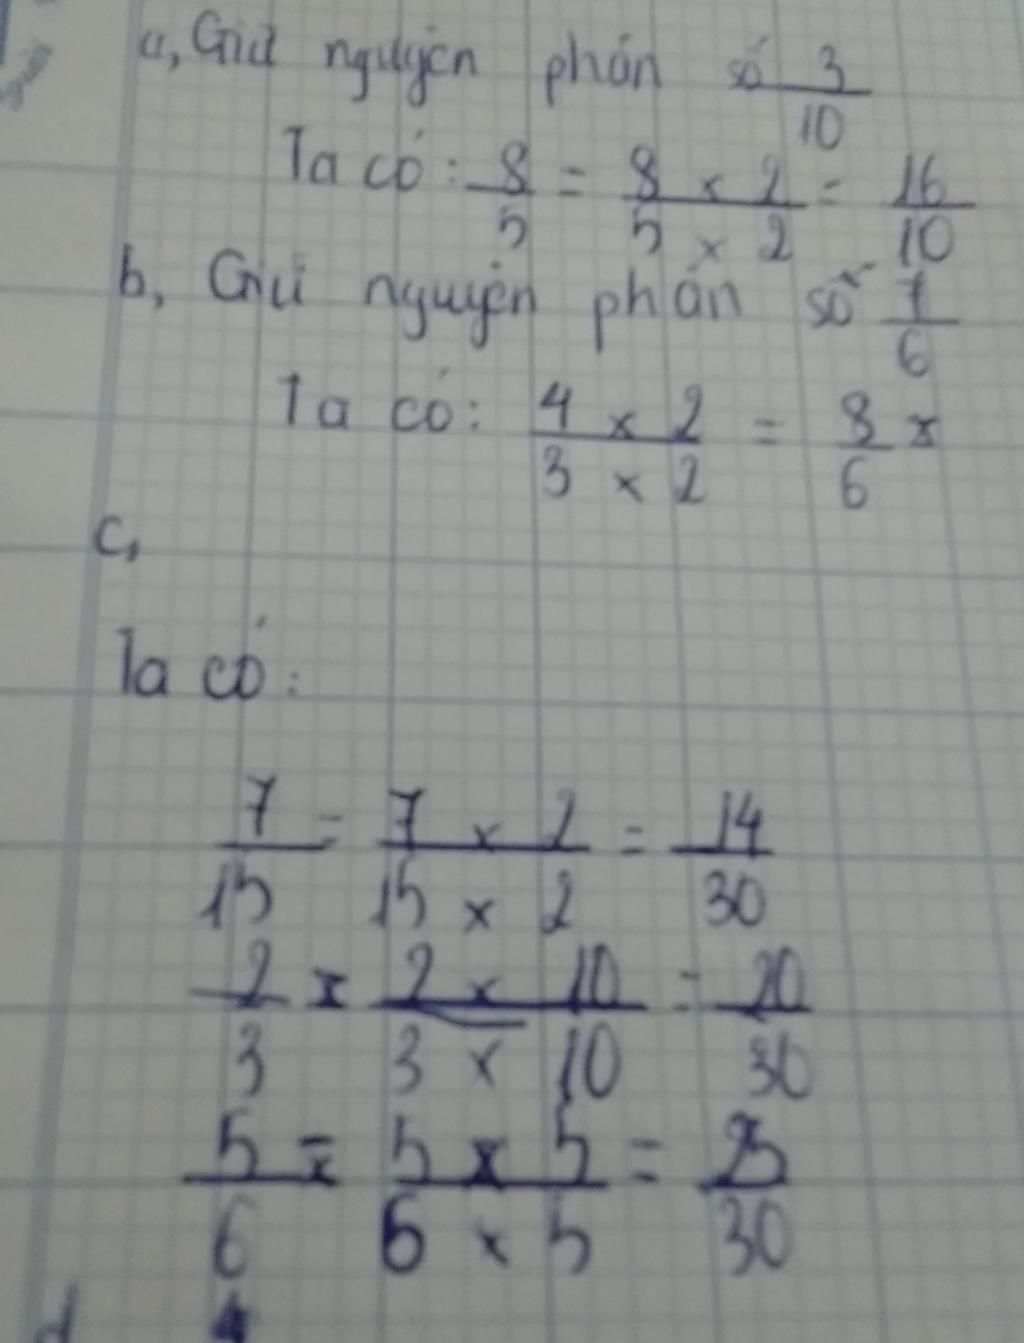 a, Giữ nguyên phân số 3/10
Ta có: 8/5 = 8 x 2 / 5 x 2 = 16/10
b, Giữ nguyên phân số 7/6
Ta có: 4 x 2 / 3 x 2 = 8/6 x
c,
Ta có:
7/15 = 7 x 2 / 15 x 2 = 14/30
2/3 = 2 x 10 / 3 x 10 = 20/30
5/6 = 5 x 5 / 6 x 5 = 25/30
d